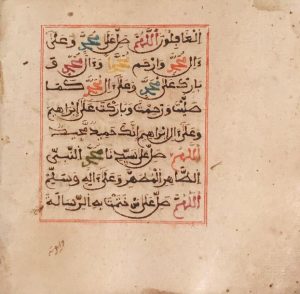 الغافلون اللهم صل على محمد وعلى
ءال محمد وارحم محمدا وءال محمد و
بارك على محمد وعلى ءال محمد كما
صليت ورحمت وباركت على إبراهيم
وعلى ءال إبراهيم إنك حميد مجيد
اللهم صل على سيدنا محمد النبي
الطاهر المطهر وعلى ءاله وسلم
اللهم صل على من ختمت به الرسالة
وأيدته